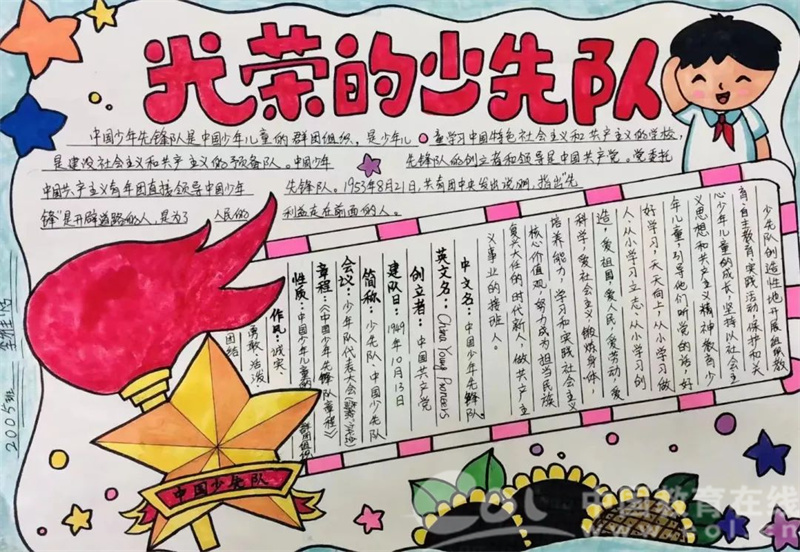 光荣的少先队
中国少年先锋队是中国少年儿童的群团组织，是少年儿童学习中国特色社会主义和共产主义的学校，
是建设社会主义和共产主义的预备队。中国少年先锋队的创立者和领导是中国共产党。党委托
中国共产主义青年团直接领导中国少年先锋队。1953年8月21日，共青团中央发出说明，指出"先
锋"是开辟道路的人，是为了人民的利益走在前面的人。
少先队创造性地开展组织教
育、自主教育、实践活动，保护和关
心少年儿童的成长，坚持以社会主
义思想和共产主义精神教育少
年儿童，引导他们听党的话，好
好学习，天天向上，从小学习做
人、从小学习立志、从小学习创
造，爱祖国，爱人民，爱劳动，爱
科学，爱社会主义，锻炼身体，
培养能力，学习和实践社会主义
核心价值观，努力成为担当民族
复兴大任的时代新人，做共产主
义事业的接班人。
中文名：中国少年先锋队
英文名：China Young Pioneers
创立者：中国共产党
建队日：1949年10月13日
简称：少先队、中国少先队
会议：少年队代表大会
章程：《中国少年先锋队章程》
性质：中国少年儿童的群团组织
作风：诚实、
勇敢、活泼、
团结
中国少先队
2005班
中国教育在线